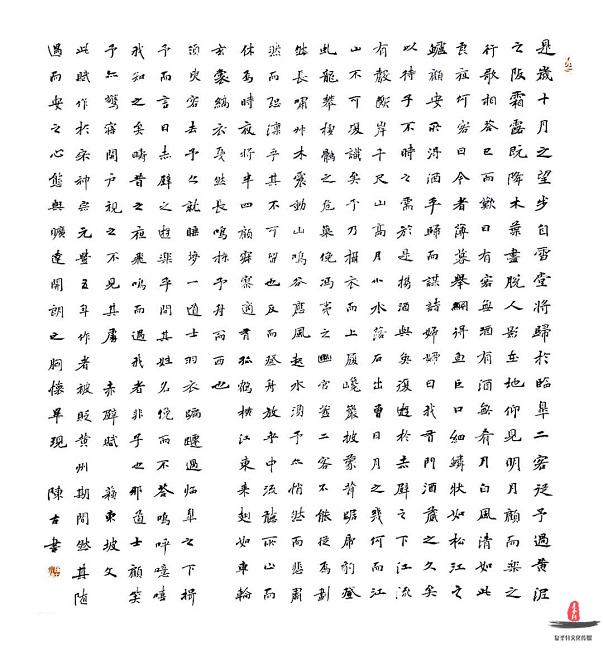 是歲十月之望步自雪堂將歸於臨皋二客從予過黃泥
之阪霜露既降木葉盡脫人影在地仰見明月顧而樂之
行歌相答已而歎曰有客無酒有酒無肴月白風清如此
良夜何客曰今者薄暮舉網得魚巨口細鱗狀如松江之
鱸顧安所得酒乎歸而謀諸婦婦曰我有斗酒藏之久矣
以待子不時之需於是攜酒與魚復遊於赤壁之下江流
有聲斷岸千尺山高月小水落石出曾日月之幾何而江
山不可復識矣予乃攝衣而上履巉巖披蒙茸踞虎豹登
虬龍攀棲鶻之危巢俯馮夷之幽宮蓋二客不能從焉劃
然長嘯草木震動山鳴谷應風起水涌予亦悄然而悲肅
然而恐凜乎其不可留也反而登舟放乎中流聽所止而
休焉時夜將半四顧寂寥適有孤鶴橫江東來翅如車輪
玄裳縞衣戛然長鳴掠予舟而西也
須臾客去予亦就睡夢一道士羽衣蹁躚過臨皋之下揖
予而言曰赤壁之遊樂乎問其姓名俛而不答嗚呼噫嘻
我知之矣疇昔之夜飛鳴而過我者非子也邪道士顧笑
予亦驚寤開戶視之不見其處 赤壁賦 蘇東坡文
此賦作於宋神宗元豐五年作者被貶黃州期間然其隨
遇而安之心態與曠達開朗之胸懷畢現 陳古書